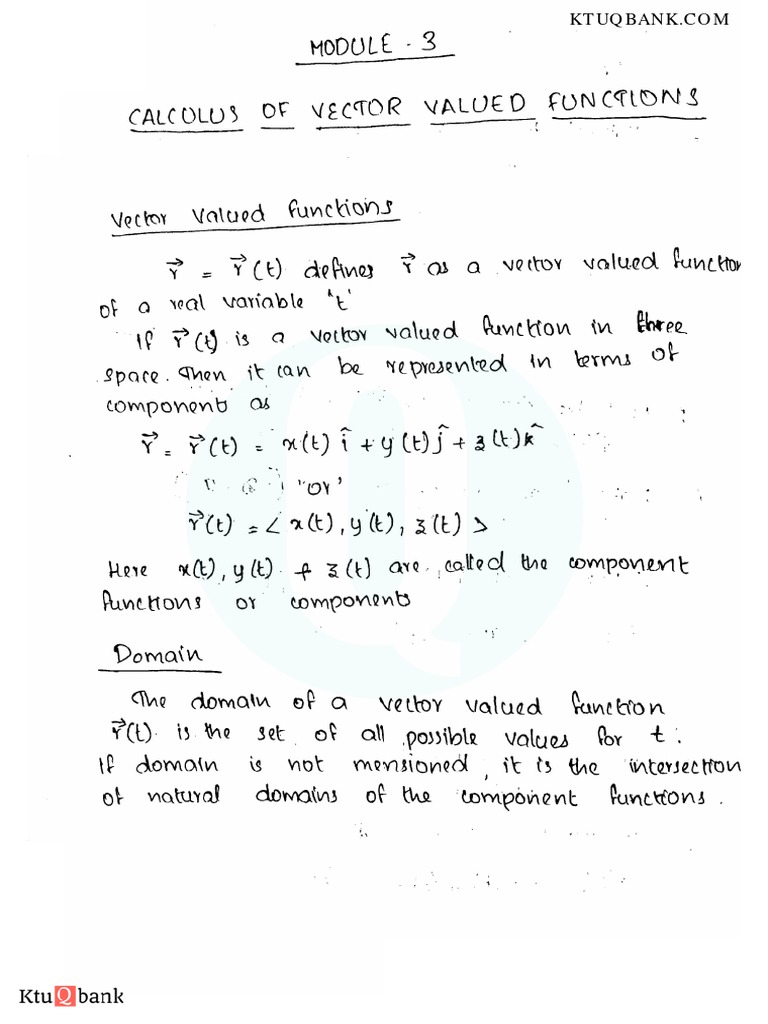 KTUQBANK.COM
MODULE - 3
CALCULUS OF VECTOR VALUED FUNCTIONS
Vector Valued functions
r⃗ = r⃗(t) defines r⃗ as a vector valued function
of a real variable 't'
If r⃗(t) is a vector valued function in three
space. Then it can be represented in terms of
component as
r⃗ = r⃗(t) = x(t) î + y(t) ĵ + z(t) k̂
"or"
r⃗(t) = < x(t), y(t), z(t) >
Here x(t), y(t) & z(t) are called the component
functions or components
Domain
The domain of a vector valued function
r⃗(t) is the set of all possible values for t.
If domain is not mensioned, it is the intersection
of natural domains of the component functions.
KtuQbank